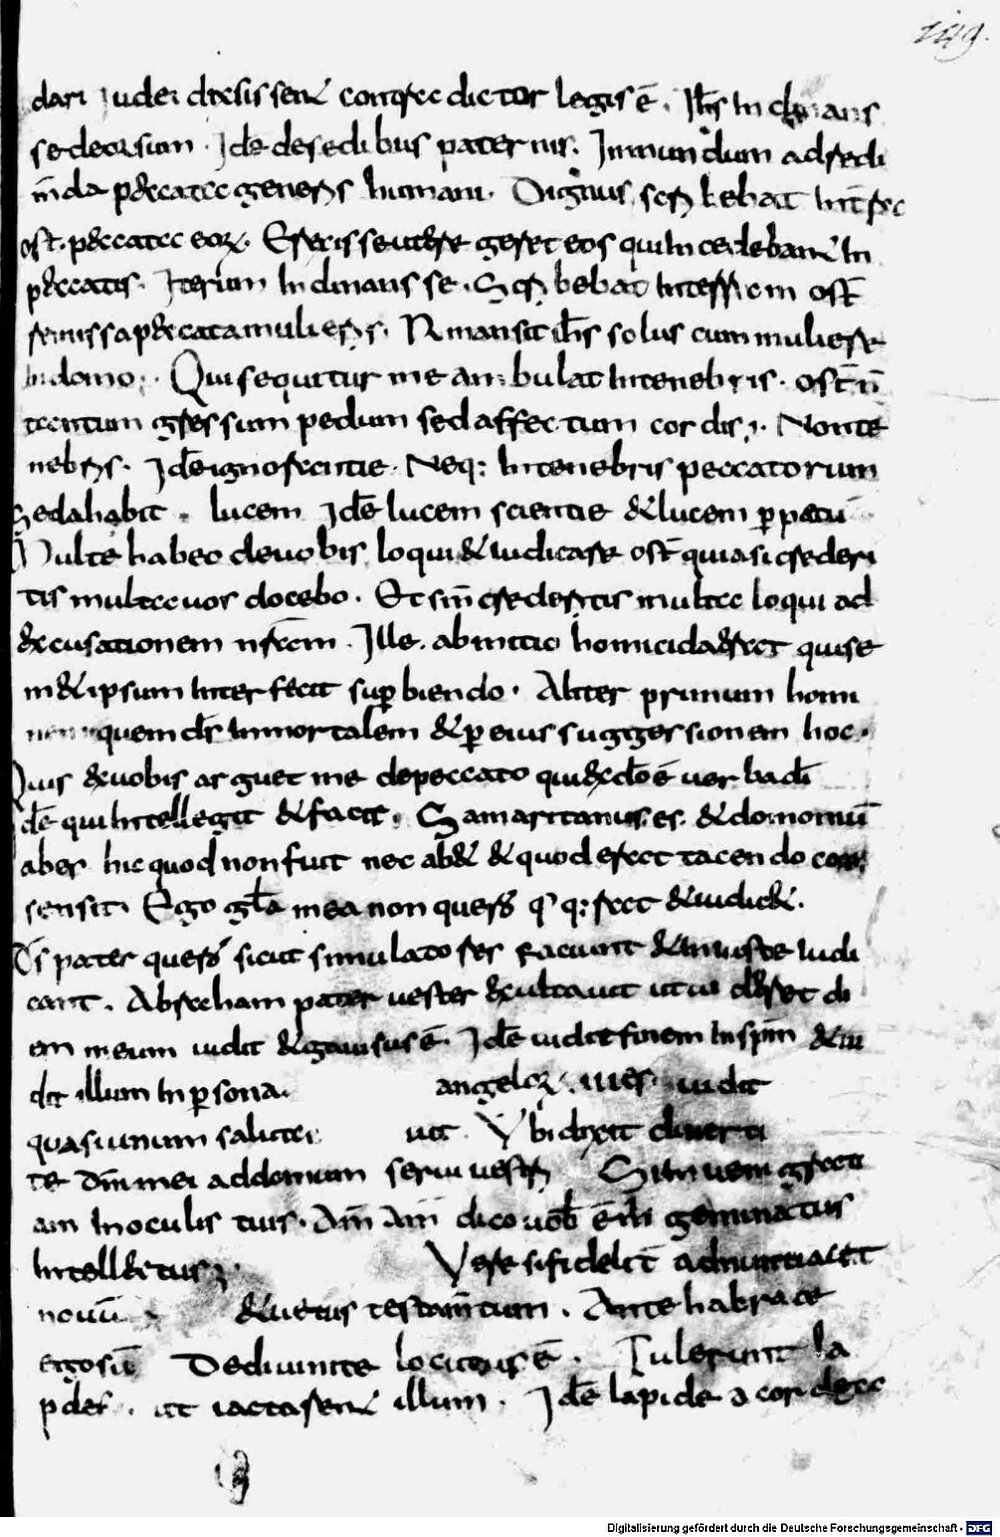 149.
dari iudei dixissent contra dictor legis ē. Ihs Inclinans
se deorsum. Idē de sedibus paternis. In mundum ad sedi
m̄da peccata generis humani. Digitus scribebat Int
ost peccata eorum. Erexisse utrre geret eos qui Incedebant In
peccatis. Iterum Inclinans se. Scribebat Inteř ost̄
remissa peccata mulieris. Remansit ihs solus cum muliere
In domo. Qui sequitur me ambulat Intenebris. ost̄ ñ
tantum gressum pedum sed affectum cordis. Nonte
nebris. Idē ignorantie. Neq: Intenebris peccatorum
Sed ahabit. lucem Idē lucem scientie & lucem perpetu
Multe habeo de uobis loqui & iudicare ost̄ quia si crederi
tis multa uor docebo. Et sin̄ crederitis multa loqui ad
excusationem nr̄am. Ille. ab initio homicida erat qui se
m& ipsum Interfecit superbiendo. Aliter primum homi
nem quem dr̄ Inmortalem & per eius suggessionem hoc.
Quis ex uobis arguet me depeccato qui ex dō ē uerba dī
dē qui Intellegit & facit. Samaritanus es. & domomū
abes hic quod non fuit nec ab & & quod erat tacendo con
sensit. Ego glā mea non quero q q: erat & iudic&.
Ds pater querit sicut simulatores faciunt & Iniuste iudi
cant. Abraham pater uester exultauit ut ui deret di
em meum uidit & gauisus ē. Idē uidit finem In spm̄ & ui
dit illum In persona. angelorum. uidit
quasi unum salute. uit. Ubi dixit diuerti
te dm̄ mei ad domum serui uestri Si Inueni grati
am In oculis tuis. Am̄ Am̄ dico uob̄ geminatus
Intellectus. Uere si fidelit̄ adnuntiauit
nouū & uetus testam̄tum. Ante habra ce
ego sū De diuinite locutus ē. Tulerunt la
pdes. ut iactarent illum. Idē lapide a cor
Digitalisierung gefördert durch die Deutsche Forschungsgemeinschaft - DFG